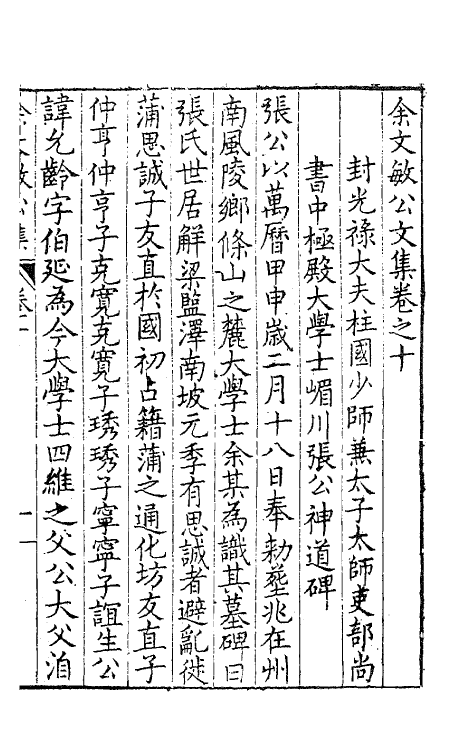 余文敏公文集卷之十
封光祿大夫柱國少師兼太子太師吏部尚
書中極殿大學士嵋川張公神道碑
張公以萬曆甲申歲二月十八日奉勑塟兆在州
南風陵鄉條山之麓大學士余某為識其墓碑曰
張氏世居解梁鹽澤南坡元季有思誠者避亂徙
蒲思誠子友直於國初占籍蒲之通化坊友直子
仲亨仲亨子克寬克寬子琇琇子寧寧子誼生公
諱允齡字伯延為今大學士四維之父公大父洎
余文敏公集 卷十 一